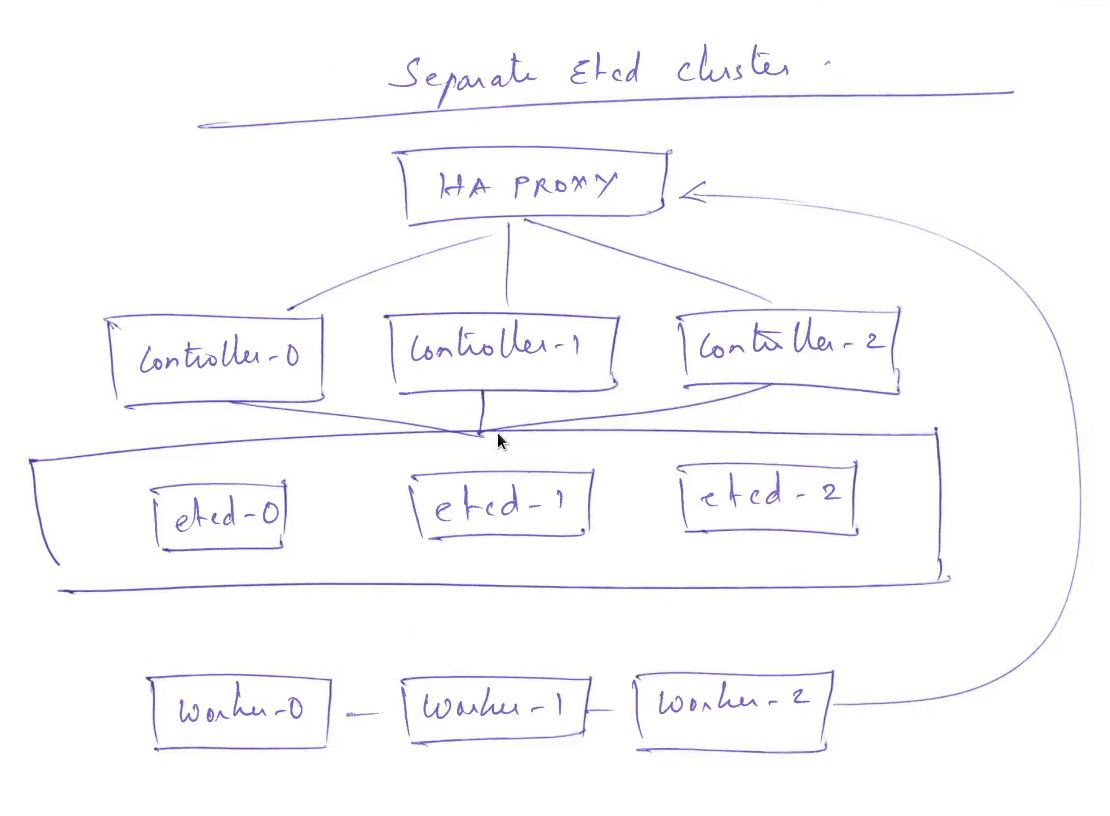 Separate Etcd cluster.
HA PROXY
Controller-0
Controller-1
Controller-2
etcd-0
etcd-1
etcd-2
Worker-0
Worker-1
Worker-2